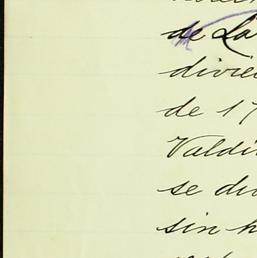 de La
divie
de 17
Valdi
se du
sin h